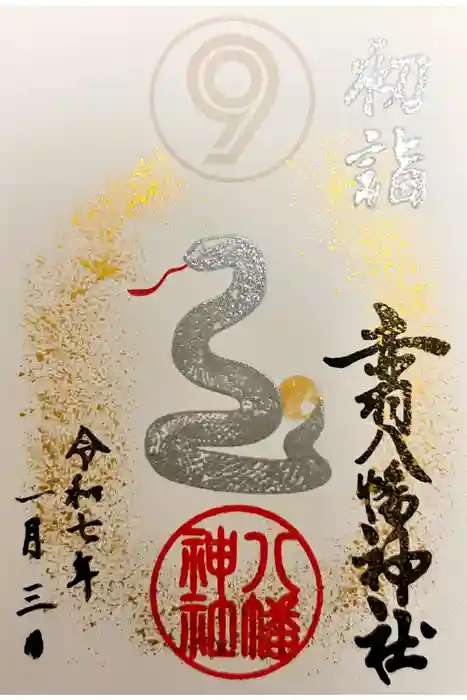 初詣
赤羽八幡神社
9
八幡
神社
令和七年
一月三日